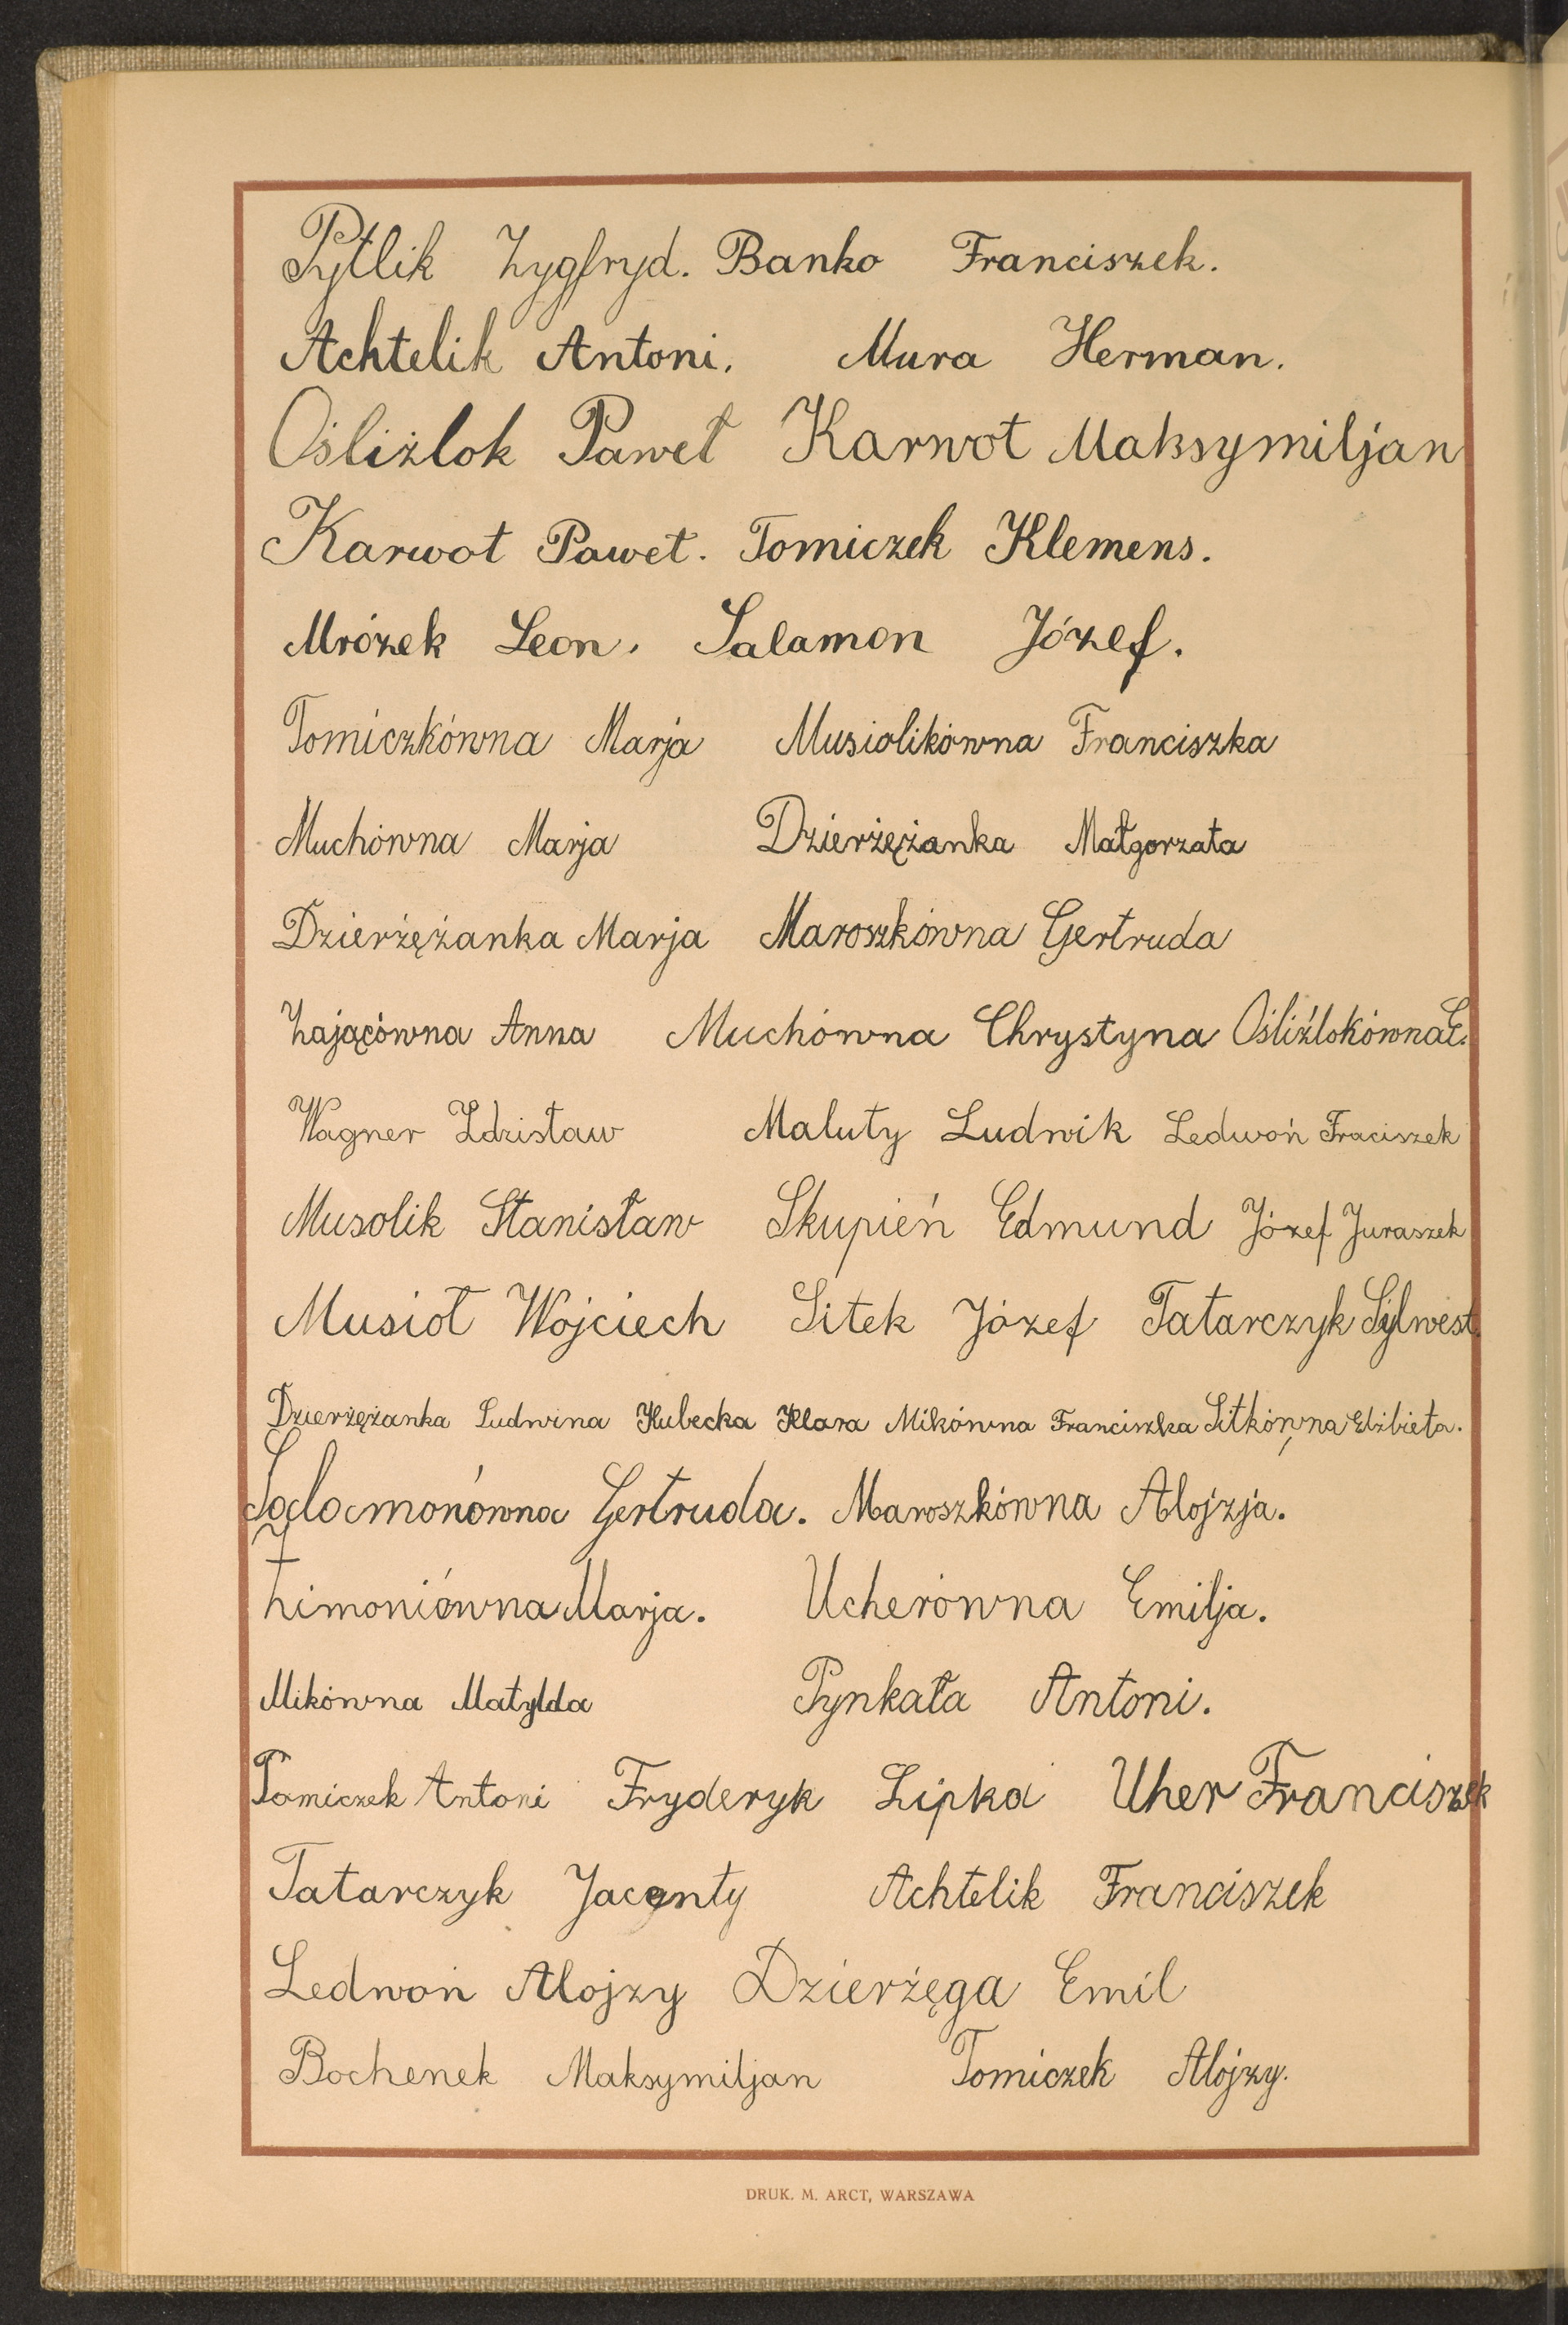 Pytlik Zygfryd. Banko Franciszek.
Achtelik Antoni. Mura Herman.
Ośliżlok Paweł Karwot Maksymiljan
Karwot Paweł. Tomiczek Klemens.
Mrózek Leon. Salamon Józef.
Tomiczkówna Marja Musiolikówna Franciszka
Muchówna Marja Dzierżężanka Małgorzata
Dzierżężanka Marja Maroszkówna Gertruda
Zającówna Anna Muchówna Chrystyna Ośliźlokówna E.
Wagner Zdzisław Maluty Ludwik Ledwoń Fraciszek
Musolik Stanisław Skupień Edmund Józef Juraszek
Musioł Wojciech Sitek Józef Tatarczyk Sylwest.
Dzierżężanka Ludwina Kubecka Klara Mikówna Franciszka Sitkówna Elżbieta.
Salomonówna Gertruda. Maroszkówna Alojzja.
Zimoniówna Marja. Ucherówna Emilja.
Mikówna Matylda Pynkała Antoni.
Tomiczek Antoni Fryderyk Lipka Uher Franciszek
Tatarczyk Jacenty Achtelik Franciszek
Ledwoń Alojzy Dzierżęga Emil
Bochenek Maksymiljan Tomiczek Alojzy.
DRUK. M. ARCT, WARSZAWA